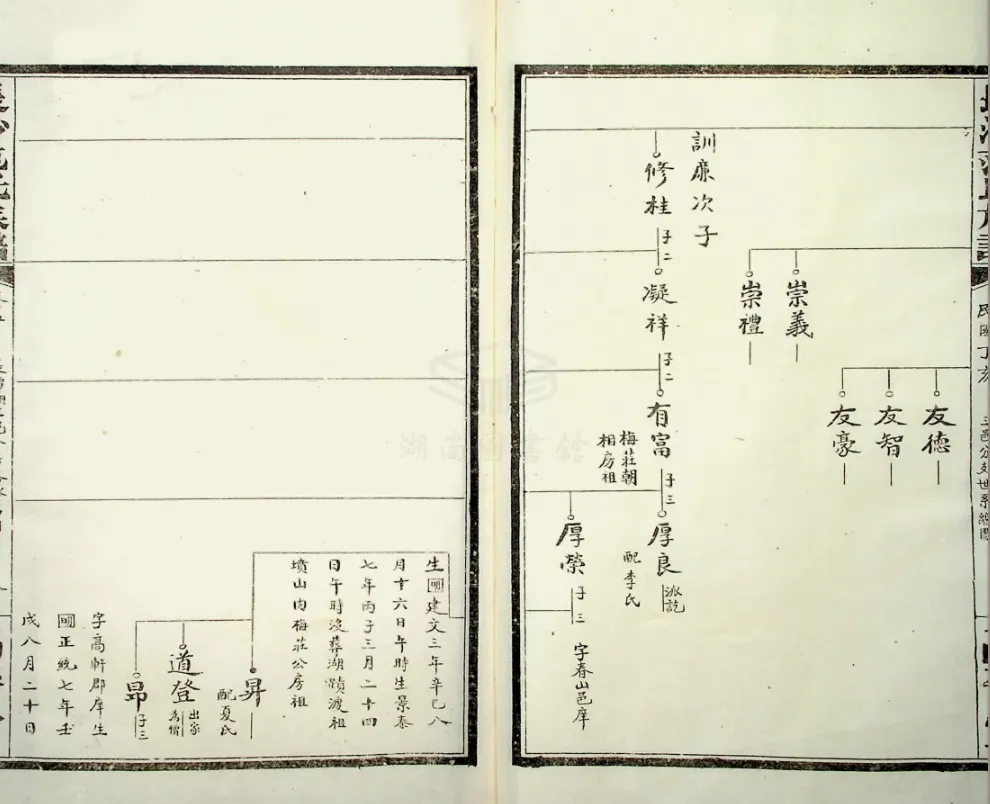 民國丁亥
友德
友智
友豪
崇義
崇禮
訓廉次子
修桂
子二
凝祥
子二
有富
梅莊朝
相房祖
子三
厚良
派訖
配李氏
厚榮
子三
字春山邑庠
生明建文三年辛巳八
月十六日午時生景泰
七年丙子三月二十四
日午時沒葬湖蹟渡祖
墳山內梅莊公房祖
昇
配夏氏
道登
出家
為僧
昂
子三
字高軒郡庠生
明正統七年壬
戌八月二十日
湖南圖書館